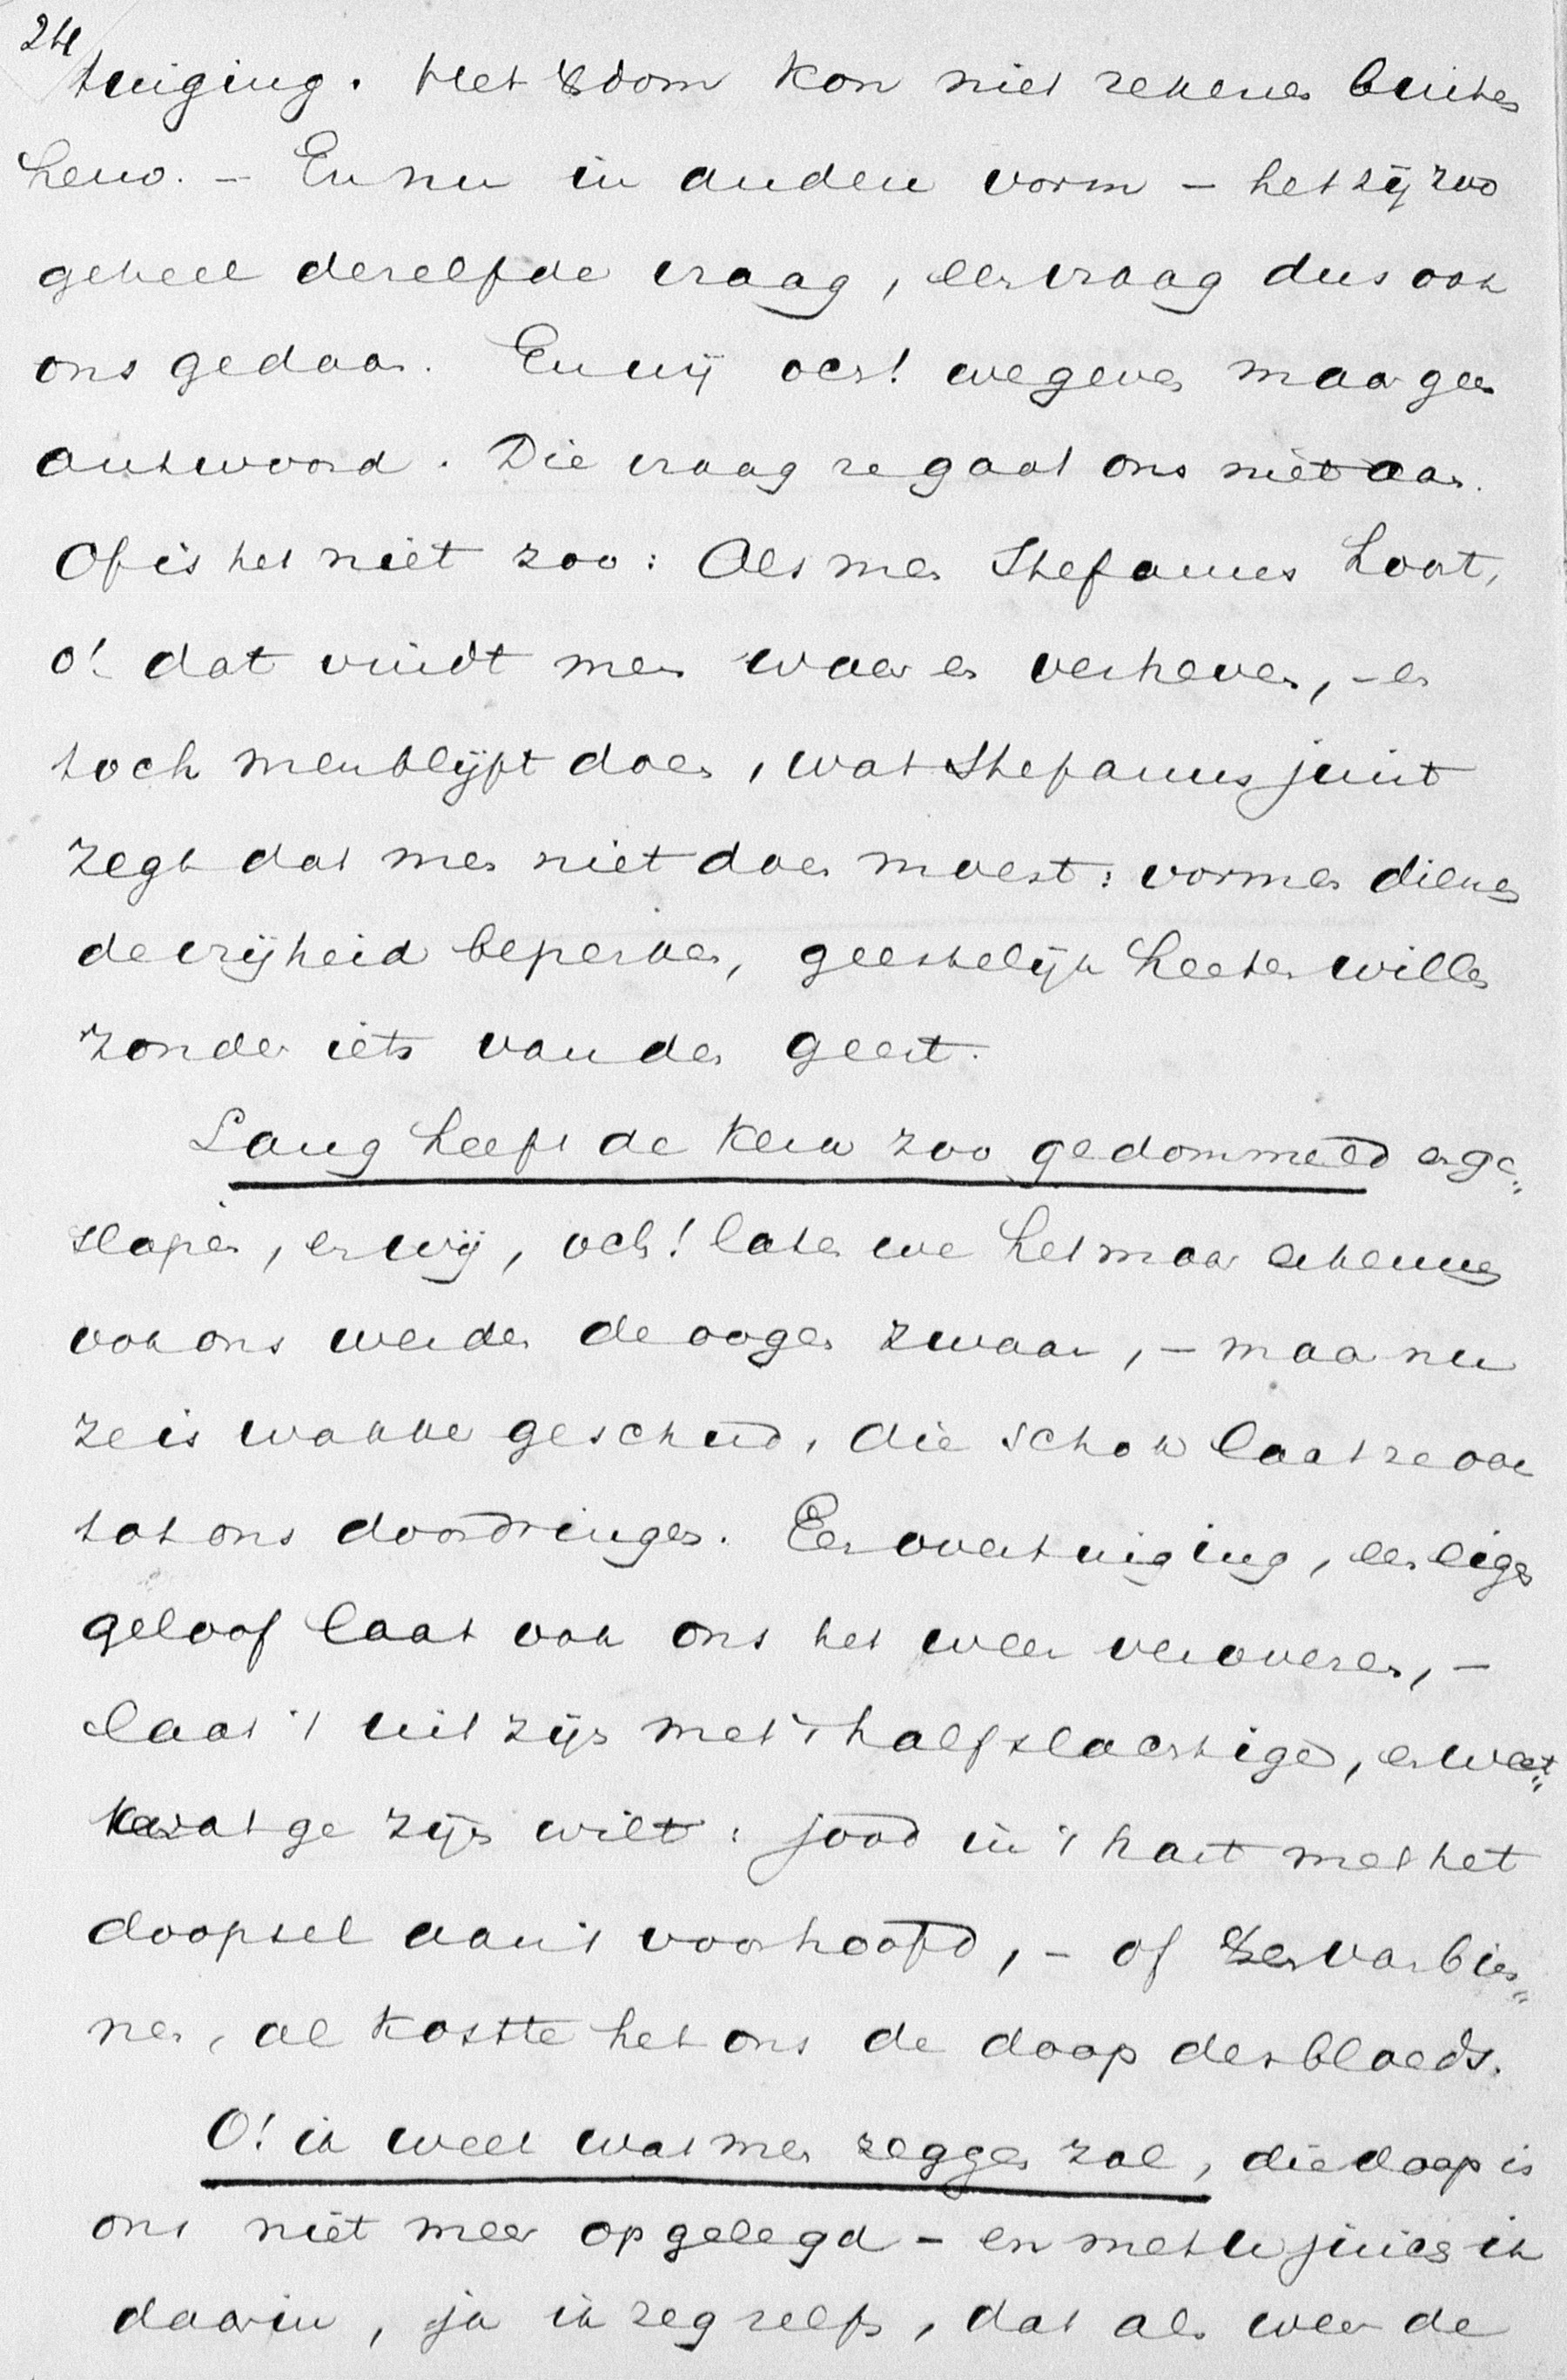 24
tuiging. Het Edom kon niet rekenen buiten
hem. – En nu in anderen vorm – het zij zoo
geheel dezelfde vraag, een vraag dus ook
ons gedaan. En wij och! we geven maar geen
antwoord. Die vraag ze gaat ons niet aan.
Of is het niet zoo: Als men Stefanus hoort,
o! dat vindt men waar en verheven, – en
toch men blijft doen, wat Stefanus juist
zegt dat men niet doen moest: vormen dienen
de vrijheid beperken, geestelijk heeten willen
zonder iets van den geest.
Lang heeft de kerk zoo gedommeld en ge„
slapen, en wij, och! laten we het maar erkennen
ook ons werden de oogen zwaar, – maar nu
ze is wakker geschud, die schok laat ze ook
tot ons doordringen. Een overtuiging, een eigen
geloof laat ook ons het weer veroveren, –
laat 't uit zijn met 't halfslachtige, en weet„
wat ge zijn wilt: jood in 't hart met het
doopsel aan 't voorhoofd, – of een van bin„
nen, al kostte het ons de doop des bloeds.
O! ik weet wat men zeggen zal, die doop is
ons niet meer opgelegd – en met u juich ik
daarin, ja ik zeg zelfs, dat als weer de